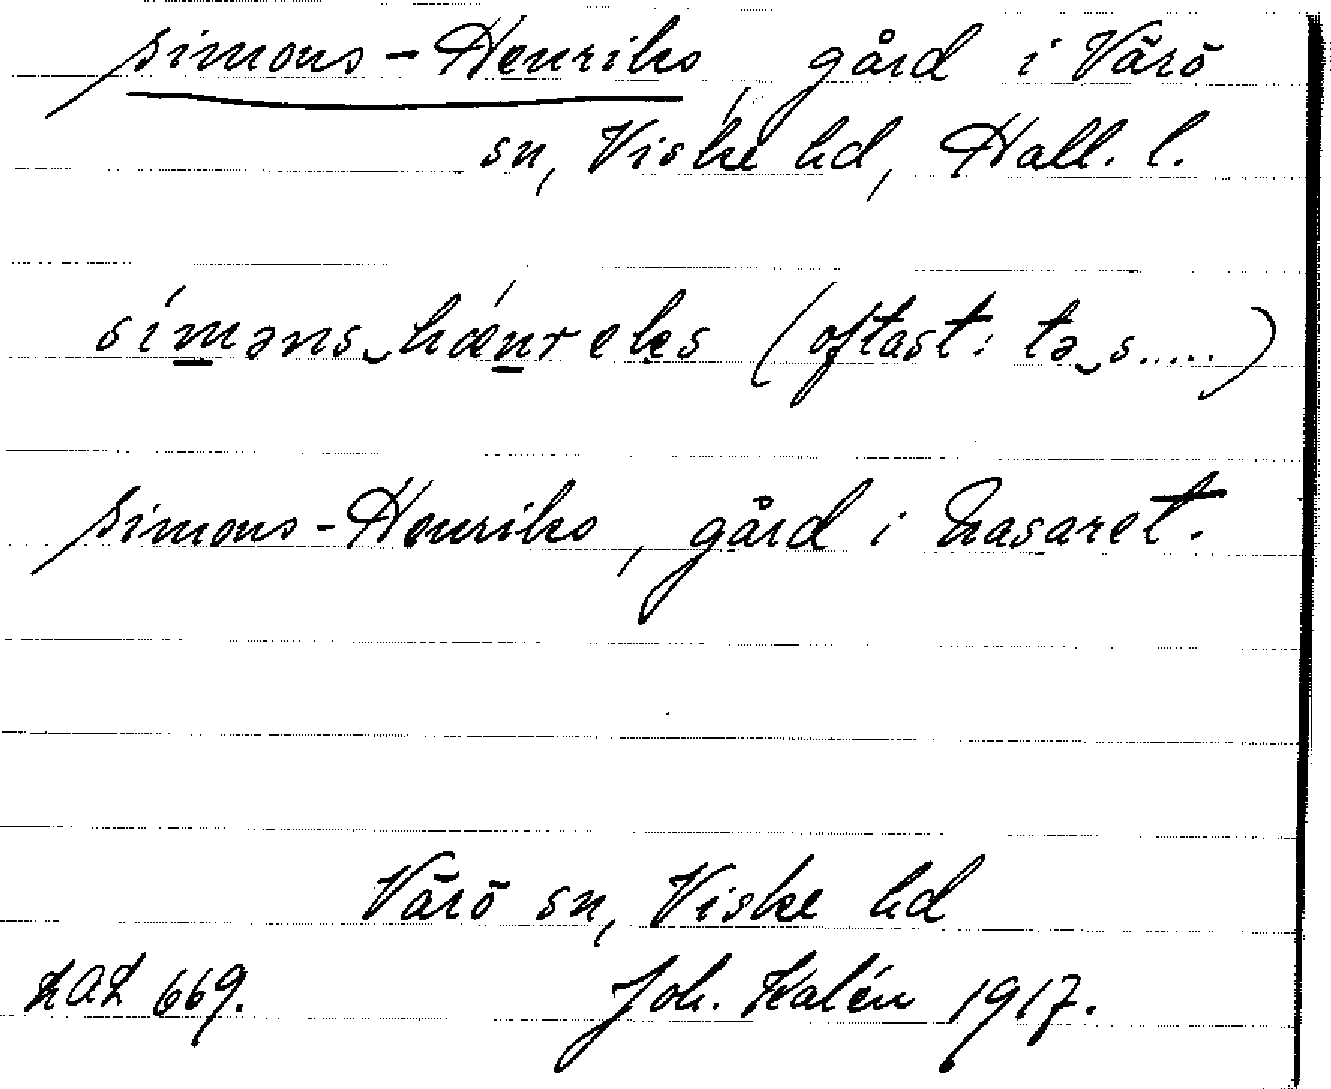 Simons-Henriks, gård i Värö
sn, Viske hd, Hall. l.
síməns‿hǽnreks (oftast: tə‿s.....)
Simons-Henriks, gård i Nasaret.
Värö sn, Viske hd
LAL 669. Joh. Kalén 1917.